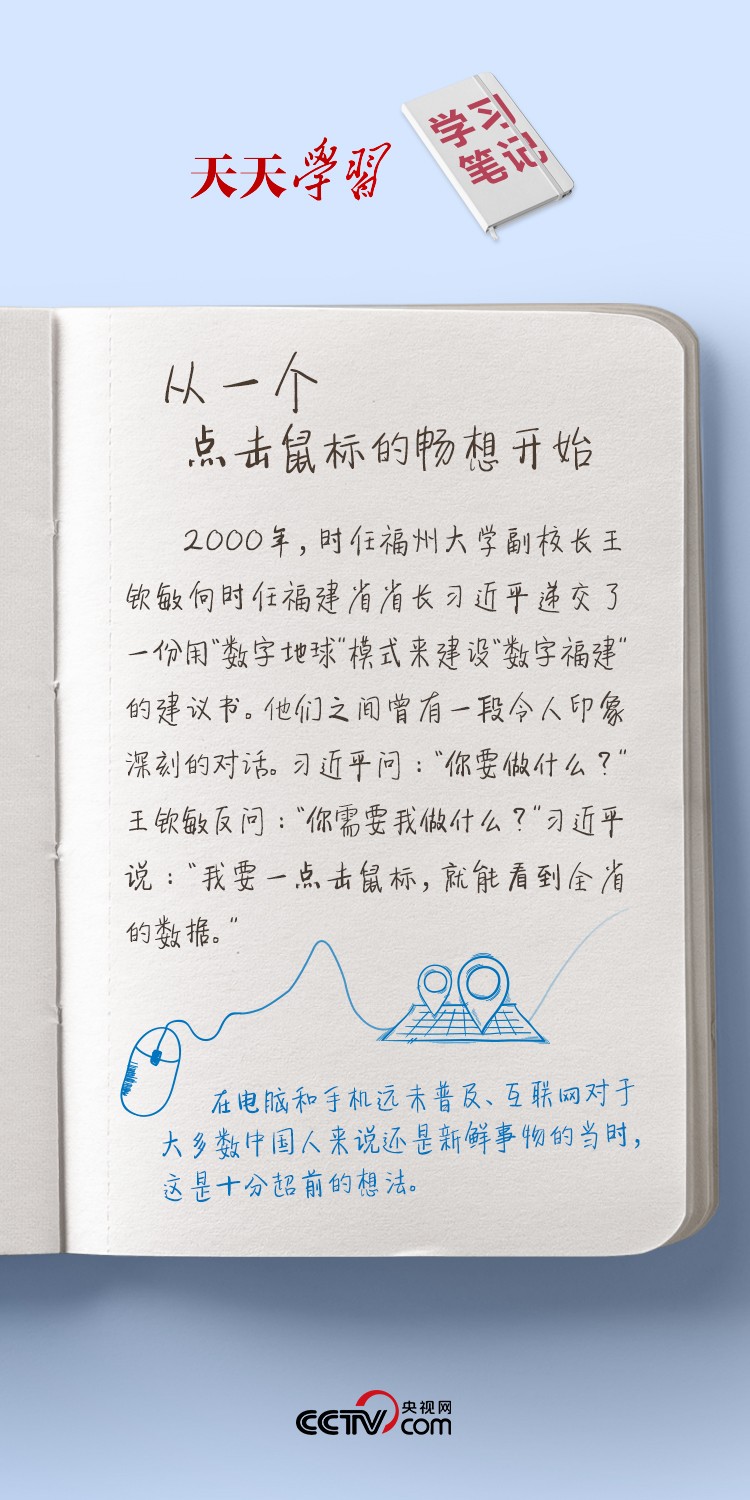 天天學習
学习
笔记
从一个
点击鼠标的畅想开始
2000年，时任福州大学副校长王
钦敏向时任福建省省长习近平递交了
一份用“数字地球”模式来建设“数字福建”
的建议书。他们之间曾有一段令人印象
深刻的对话。习近平问：“你要做什么？”
王钦敏反问：“你需要我做什么？”习近平
说：“我要一点击鼠标，就能看到全省
的数据。”
在电脑和手机远未普及、互联网对于
大多数中国人来说还是新鲜事物的当时，
这是十分超前的想法。
CCTV央视网
com